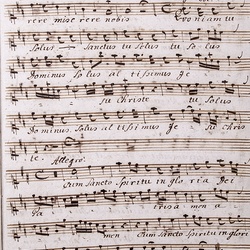 rere mise rere nobis Quoniam tu
Solus Sanctus tu Solus tu so lus
Dominus So lus al tissimus Je
su Christe tu Solus
Do minus Solus al tissimus Je su Chris
te. Allegro.
Cum Sancto Spiritu in glo ria Dei
Pa tris a men a
men Cum Sancto Spiritu in glo